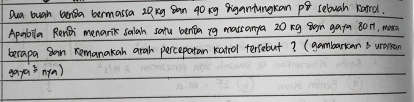 Dua buah benda bermassa 20 kg dan 40 kg digantungkan pd sebuah katrol.
Apabila Rendi menarik salah satu benda yg massanya 20 kg dgn gaya 80 N, maka
berapa dan kemanakah arah percepatan katrol tersebut ? (gambarkan & uraikan
gaya² nya)